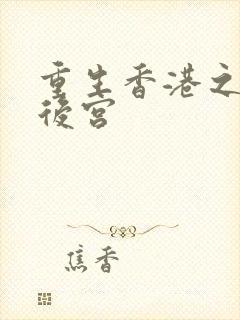 重生香港之
後宮
焦香